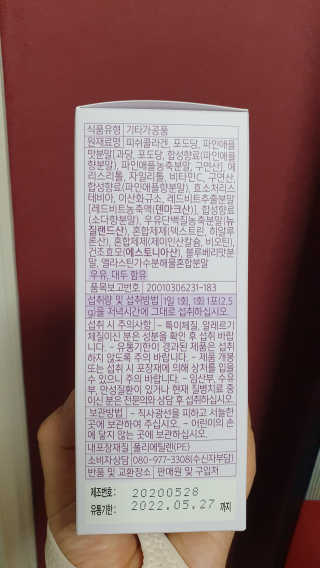 식품유형 기타가공품
원재료명 피쉬콜라겐, 포도당, 파인애플
맛분말[과당, 포도당, 합성향료(파인애플
향분말), 파인애플농축분말, 구연산], 에
리스리톨, 자일리톨, 비타민C, 구연산,
합성향료(파인애플향분말), 효소처리스
테비아, 이산화규소, 레드비트추출분말
[레드비트농축액(덴마크산)], 합성향료
(소다향분말), 우유단백질농축분말(뉴
질랜드산), 혼합제제(덱스트린, 히알루
론산), 혼합제제(제이인산칼슘, 비오틴),
건조효모(에스토니아산), 블루베리맛분
말, 엘라스틴가수분해물혼합분말
우유, 대두 함유
품목보고번호 20010306231-183
섭취량 및 섭취방법 1일 1회, 1회 1포(2.5
g)을 저녁시간에 그대로 섭취하십시오.
섭취 시 주의사항 - 특이체질, 알레르기
체질이신 분은 성분을 확인 후 섭취 바랍
니다. - 유통기한이 경과된 제품은 섭취
하지 않도록 주의 바랍니다. - 제품 개봉
또는 섭취 시 포장재에 의해 상처를 입을
수 있으니 주의 바랍니다. - 임산부, 수유
부, 만성질환이 있거나 현재 질병치료 중
이신 분은 전문의와 상담 후 섭취하십시오.
보관방법 - 직사광선을 피하고 서늘한
곳에 보관하여 주십시오. - 어린이의 손
에 닿지 않는 곳에 보관하십시오.
내포장재질 폴리에틸렌(PE)
소비자상담 080-977-3308(수신자부담)
반품 및 교환장소 판매원 및 구입처
제조번호 : 20200528
유통기한 : 2022.05.27 까지